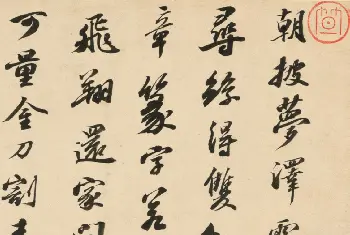 朝披夢澤雲
尋絲得雙
章篆字若
飛翔還家
可量金刀割青